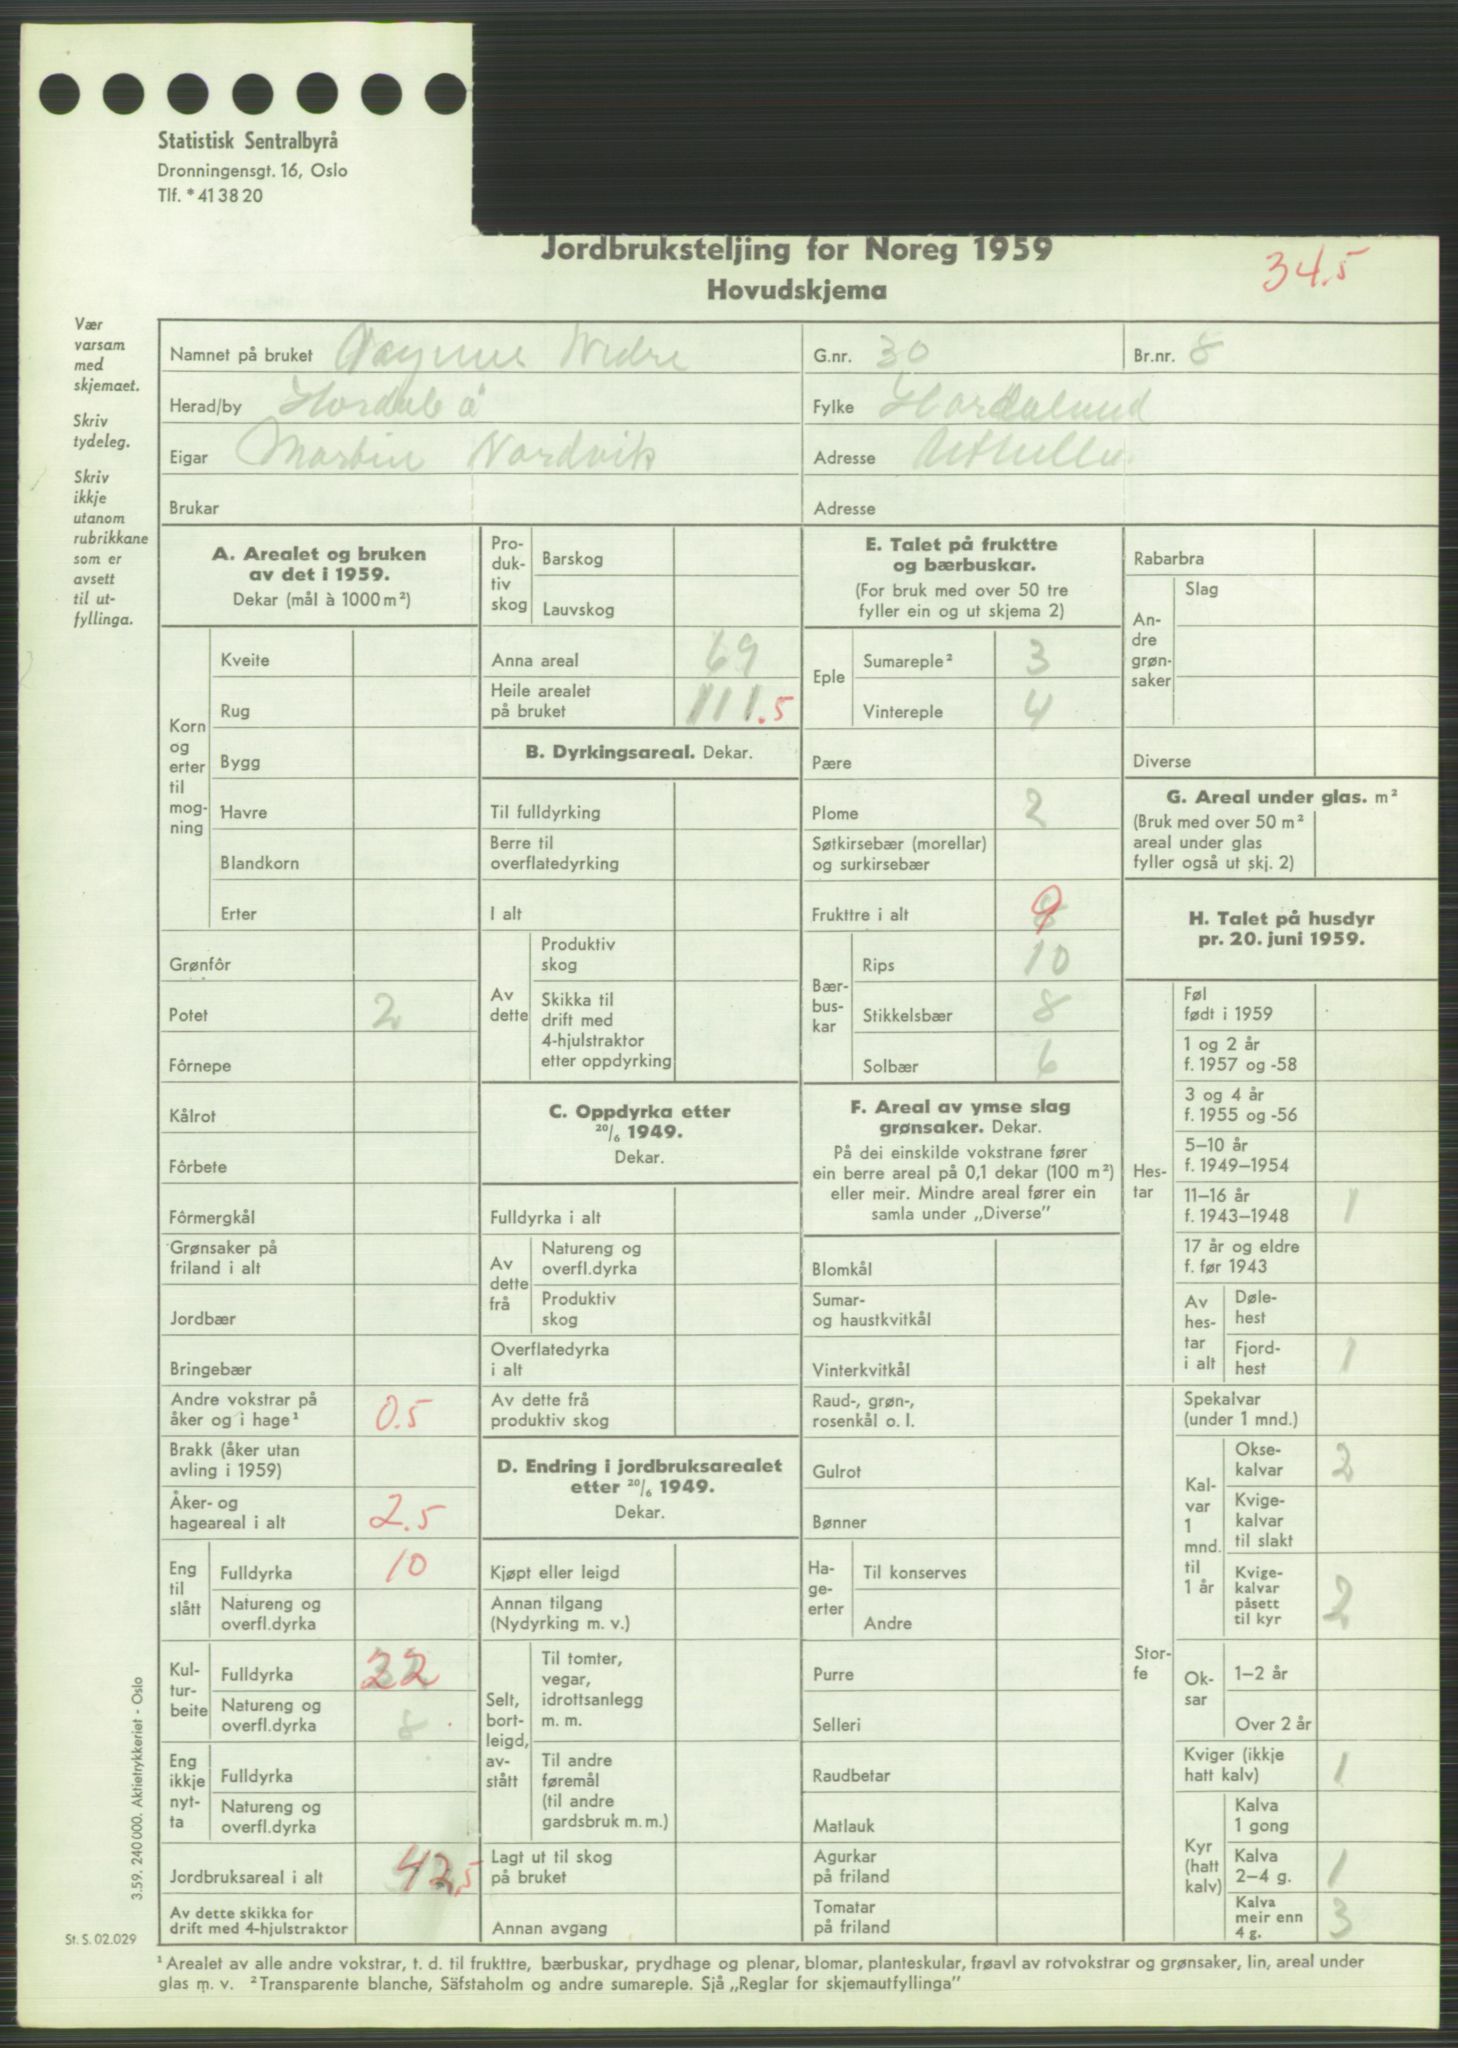 Statistisk Sentralbyrå
Dronningensgt. 16, Oslo
Tlf. * 41 38 20
Jordbruksteljing for Noreg 1959
Hovudskjema
34.5
Vær
varsam
med
skjemaet.
Skriv
tydeleg.
Skriv
ikkje
utanom
rubrikkane
som er
avsett
til ut-
fyllinga.
Namnet på bruket Nedre
G.nr. 30
Br.nr. 8
Herad/by
Fylke Hordaland
Eigar Martin Nordvik
Adresse
Brukar
Adresse
A. Arealet og bruken
av det i 1959.
Dekar (mål à 1000 m²)
Korn
og
erter
til
mog-
ning
Kveite
Rug
Bygg
Havre
Blandkorn
Erter
Grønfôr
Potet 2
Fôrnepe
Kålrot
Fôrbete
Fôrmergkål
Grønsaker på
friland i alt
Jordbær
Bringebær
Andre vokstrar på
åker og i hage¹ 0.5
Brakk (åker utan
avling i 1959)
Åker- og
hageareal i alt 2.5
Eng
til
slått
Fulldyrka 10
Natureng og
overfl.dyrka
Kul-
tur-
beite
Fulldyrka 22
Natureng og
overfl.dyrka 8
Eng
ikkje
nyt-
ta
Fulldyrka
Natureng og
overfl.dyrka
Jordbruksareal i alt 42.5
Av dette skikka for
drift med 4-hjulstraktor
Pro-
duk-
tiv
skog
Barskog
Lauvskog
Anna areal 69
Heile arealet
på bruket 111.5
B. Dyrkingsareal. Dekar.
Til fulldyrking
Berre til
overflatedyrking
I alt
Av
dette
Produktiv
skog
Skikka til
drift med
4-hjulstraktor
etter oppdyrking
C. Oppdyrka etter
20/6 1949.
Dekar.
Fulldyrka i alt
Av
dette
frå
Natureng og
overfl.dyrka
Produktiv
skog
Overflatedyrka
i alt
Av dette frå
produktiv skog
D. Endring i jordbruksarealet
etter 20/6 1949.
Dekar.
Kjøpt eller leigd
Annan tilgang
(Nydyrking m. v.)
Selt,
bort-
leigd,
av-
stått
Til tomter,
vegar,
idrottsanlegg
m. m.
Til andre
føremål
(til andre
gardsbruk m. m.)
Lagt ut til skog
på bruket
Annan avgang
E. Talet på frukttre
og bærbuskar.
(For bruk med over 50 tre
fyller ein og ut skjema 2)
Eple
Sumareple² 3
Vintereple 4
Pære
Plome 2
Søtkirsebær (morellar)
og surkirsebær
Frukttre i alt 9
Bær-
bus-
kar
Rips 10
Stikkelsbær 8
Solbær 6
F. Areal av ymse slag
grønsaker. Dekar.
På dei einskilde vokstrane fører
ein berre areal på 0,1 dekar (100 m²)
eller meir. Mindre areal fører ein
samla under „Diverse”
Blomkål
Sumar-
og haustkvitkål
Vinterkvitkål
Raud-, grøn-,
rosenkål o. l.
Gulrot
Bønner
Ha-
ge-
erter
Til konserves
Andre
Purre
Selleri
Raudbetar
Matlauk
Agurkar
på friland
Tomatar
på friland
Rabarbra
An-
dre
grøn-
saker
Slag
Diverse
G. Areal under glas. m²
(Bruk med over 50 m²
areal under glas
fyller også ut skj. 2)
H. Talet på husdyr
pr. 20. juni 1959.
Hes-
tar
Føl
født i 1959
1 og 2 år
f. 1957 og -58
3 og 4 år
f. 1955 og -56
5–10 år
f. 1949–1954
11–16 år
f. 1943–1948 1
17 år og eldre
f. før 1943
Av
hes-
tar
i alt
Døle-
hest
Fjord-
hest 1
Stor-
fe
Spekalvar
(under 1 mnd.)
Kal-
var
1
mnd.
til
1 år
Okse-
kalvar 2
Kvige-
kalvar
til slakt
Kvige-
kalvar
påsett
til kyr 2
Ok-
sar
1–2 år
Over 2 år
Kviger (ikkje
hatt kalv) 1
Kyr
(hatt
kalv)
Kalva
1 gong
Kalva
2–4 g. 1
Kalva
meir enn
4 g. 3
3.59. 240 000. Aktietrykkeriet - Oslo
St. S. 02.029
¹ Arealet av alle andre vokstrar, t. d. til frukttre, bærbuskar, prydhage og plenar, blomar, planteskular, frøavl av rotvokstrar og grønsaker, lin, areal under
glas m. v. ² Transparente blanche, Säfstaholm og andre sumareple. Sjå „Reglar for skjemautfyllinga”